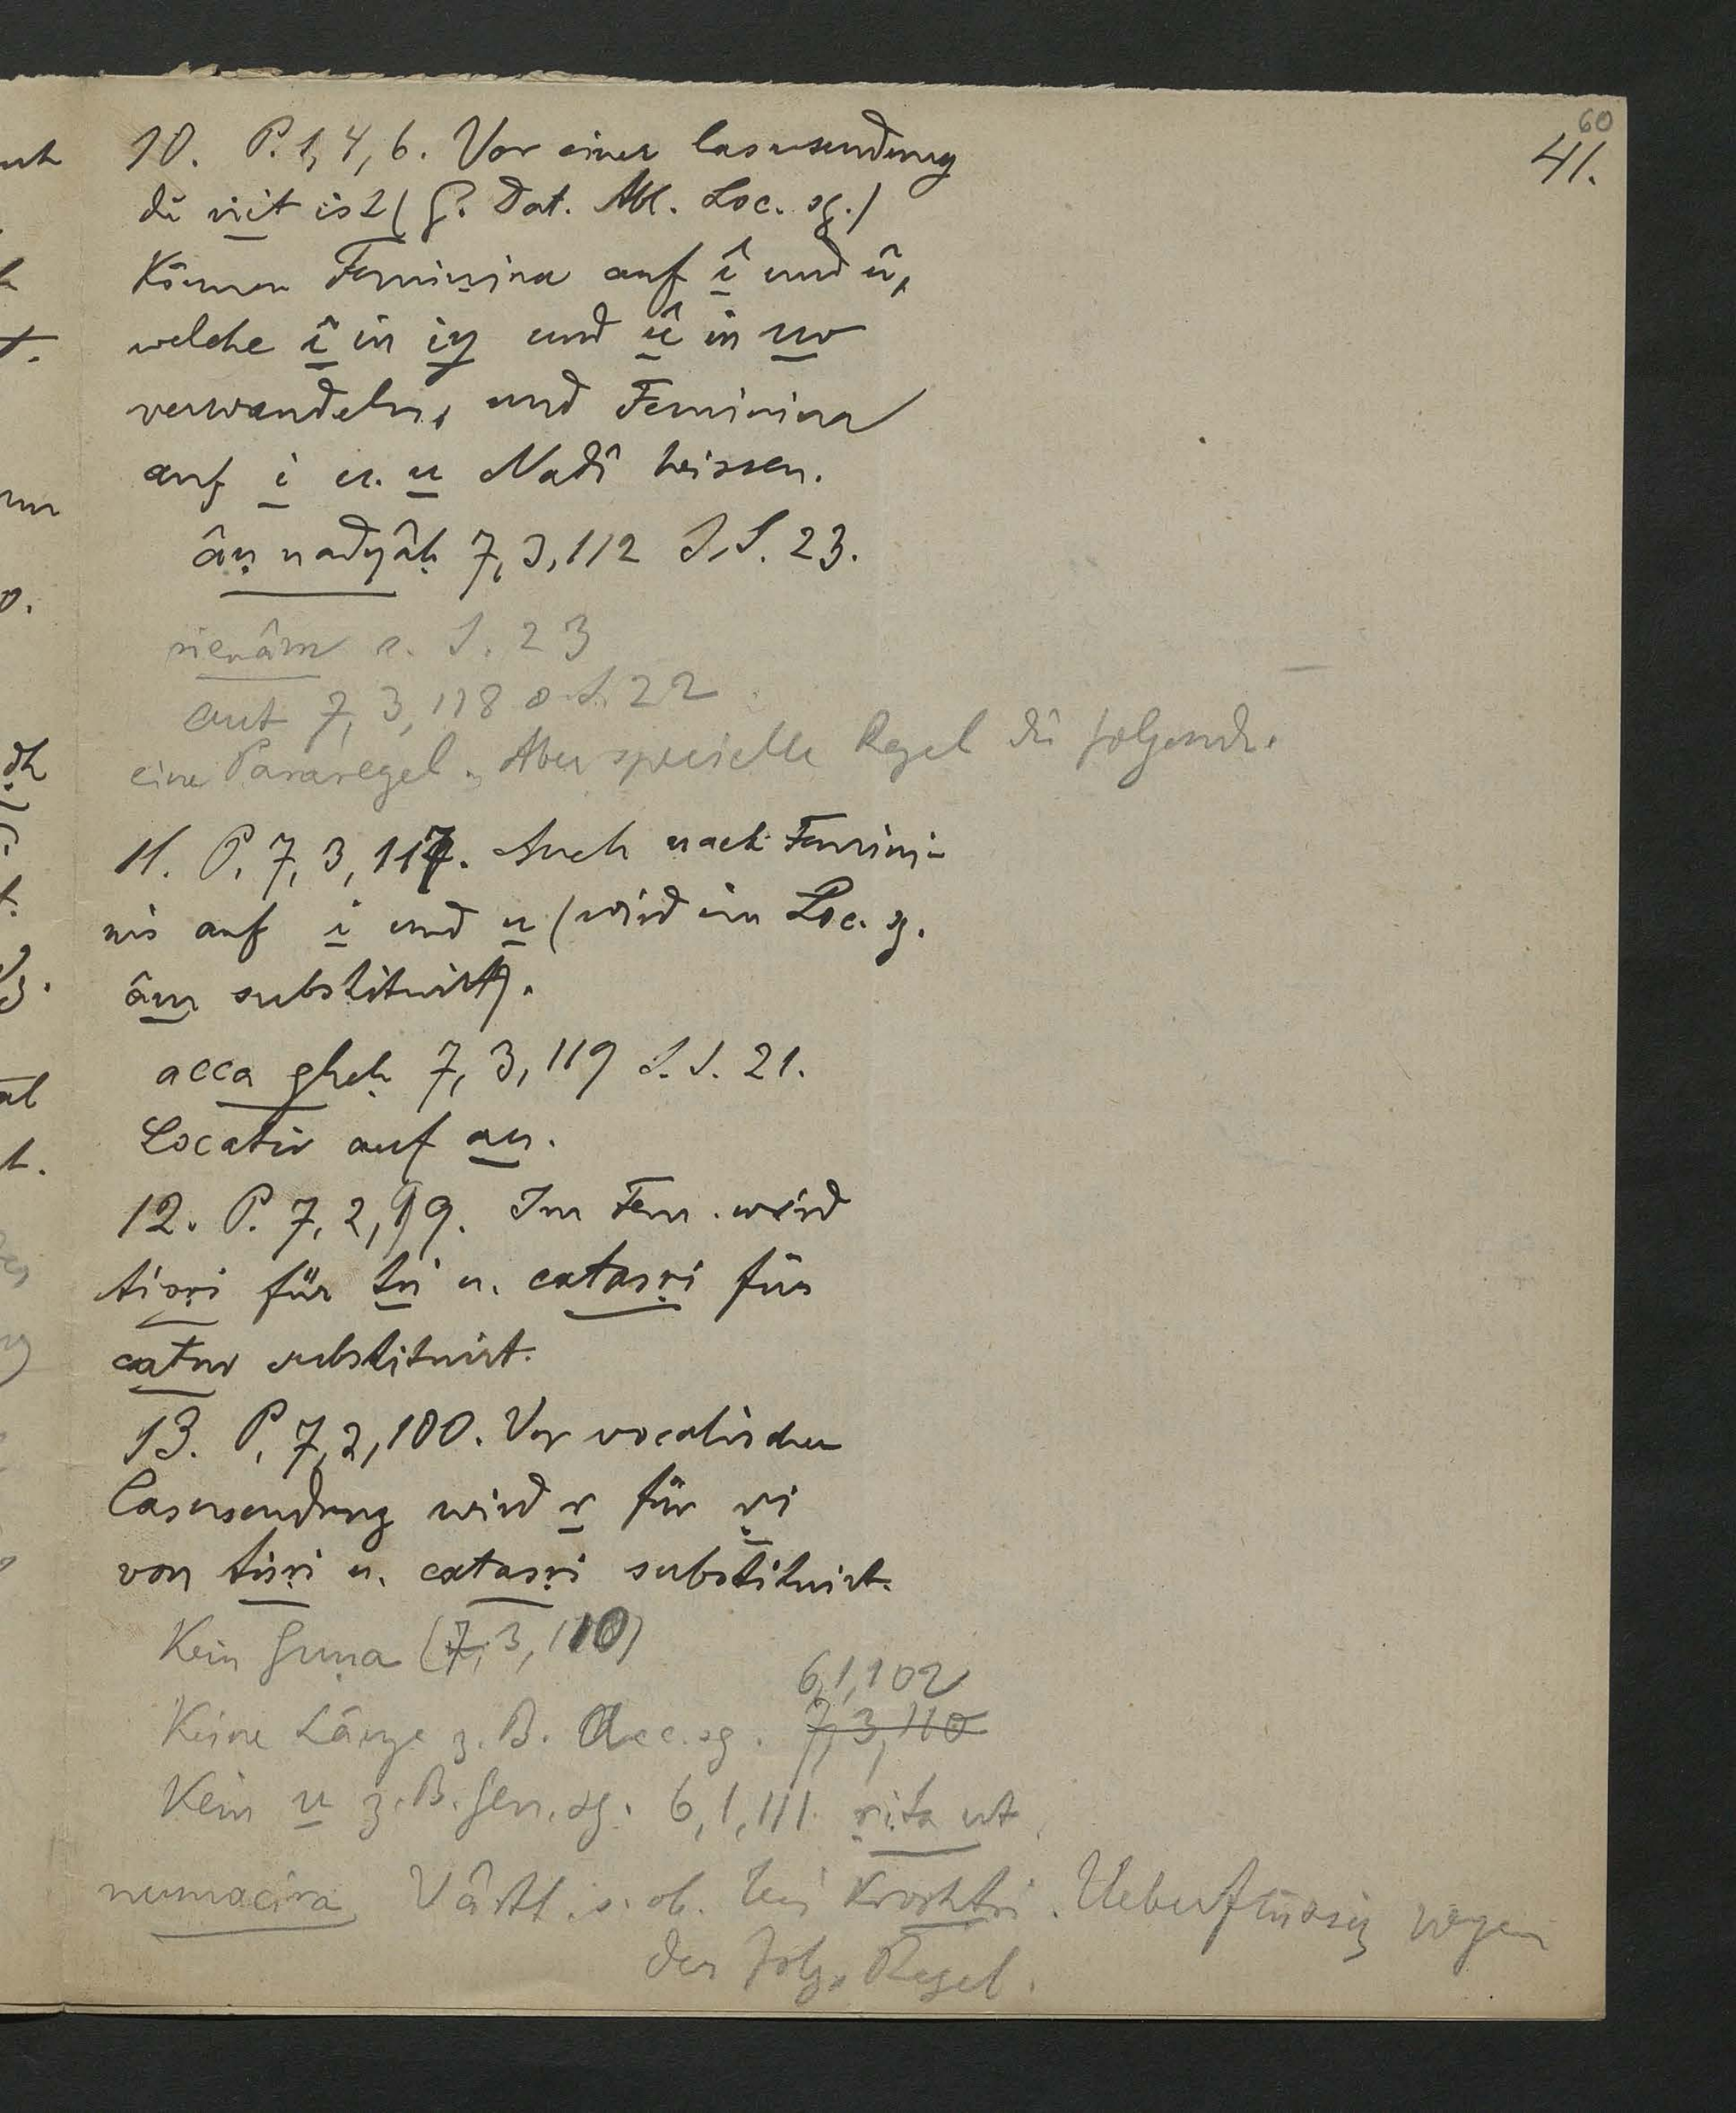 60
41.
10. P. 1, 4, 6. Vor einer Casusendung
die ṅit ist (G. Dat. Abl. Loc. sg.)
Können Feminina auf î und û,
welche î in iy und û in uv
verwandeln, und Feminina
auf i u. u Nadî heissen.
âṇ nadyâḥ 7, 3, 112 s. S. 23.
nienâm s. S. 23
aut 7, 3, 118 s. S. 22
eine Pararegel. Aber specielle Regel die folgende.
11. P. 7, 3, 117. Auch nach Femini-
nis auf i und u (wird im Loc. sg.
âm substituirt).
acca gheḥ 7, 3, 119 s. S. 21.
Locativ auf au.
12. P. 7, 2, 99. Im Fem. wird
tisṛi für tri u. catasṛi für
catur substituirt.
13. P. 7, 2, 100. Vor vocalischer
Casusendung wird r für ṛi
von tisṛi u. catasṛi substituirt.
Kein Guṇa (7, 3, 110)
6, 1, 102
Keine Länge z. B. Acc. sg. 7, 3, 110
Kein u z. B. Gen. sg. 6, 1, 111 ṛita ut.
numacira Vârtt. s. ob. bei Kroshṭri. Ueberflüssig wegen
der folg. Regel.